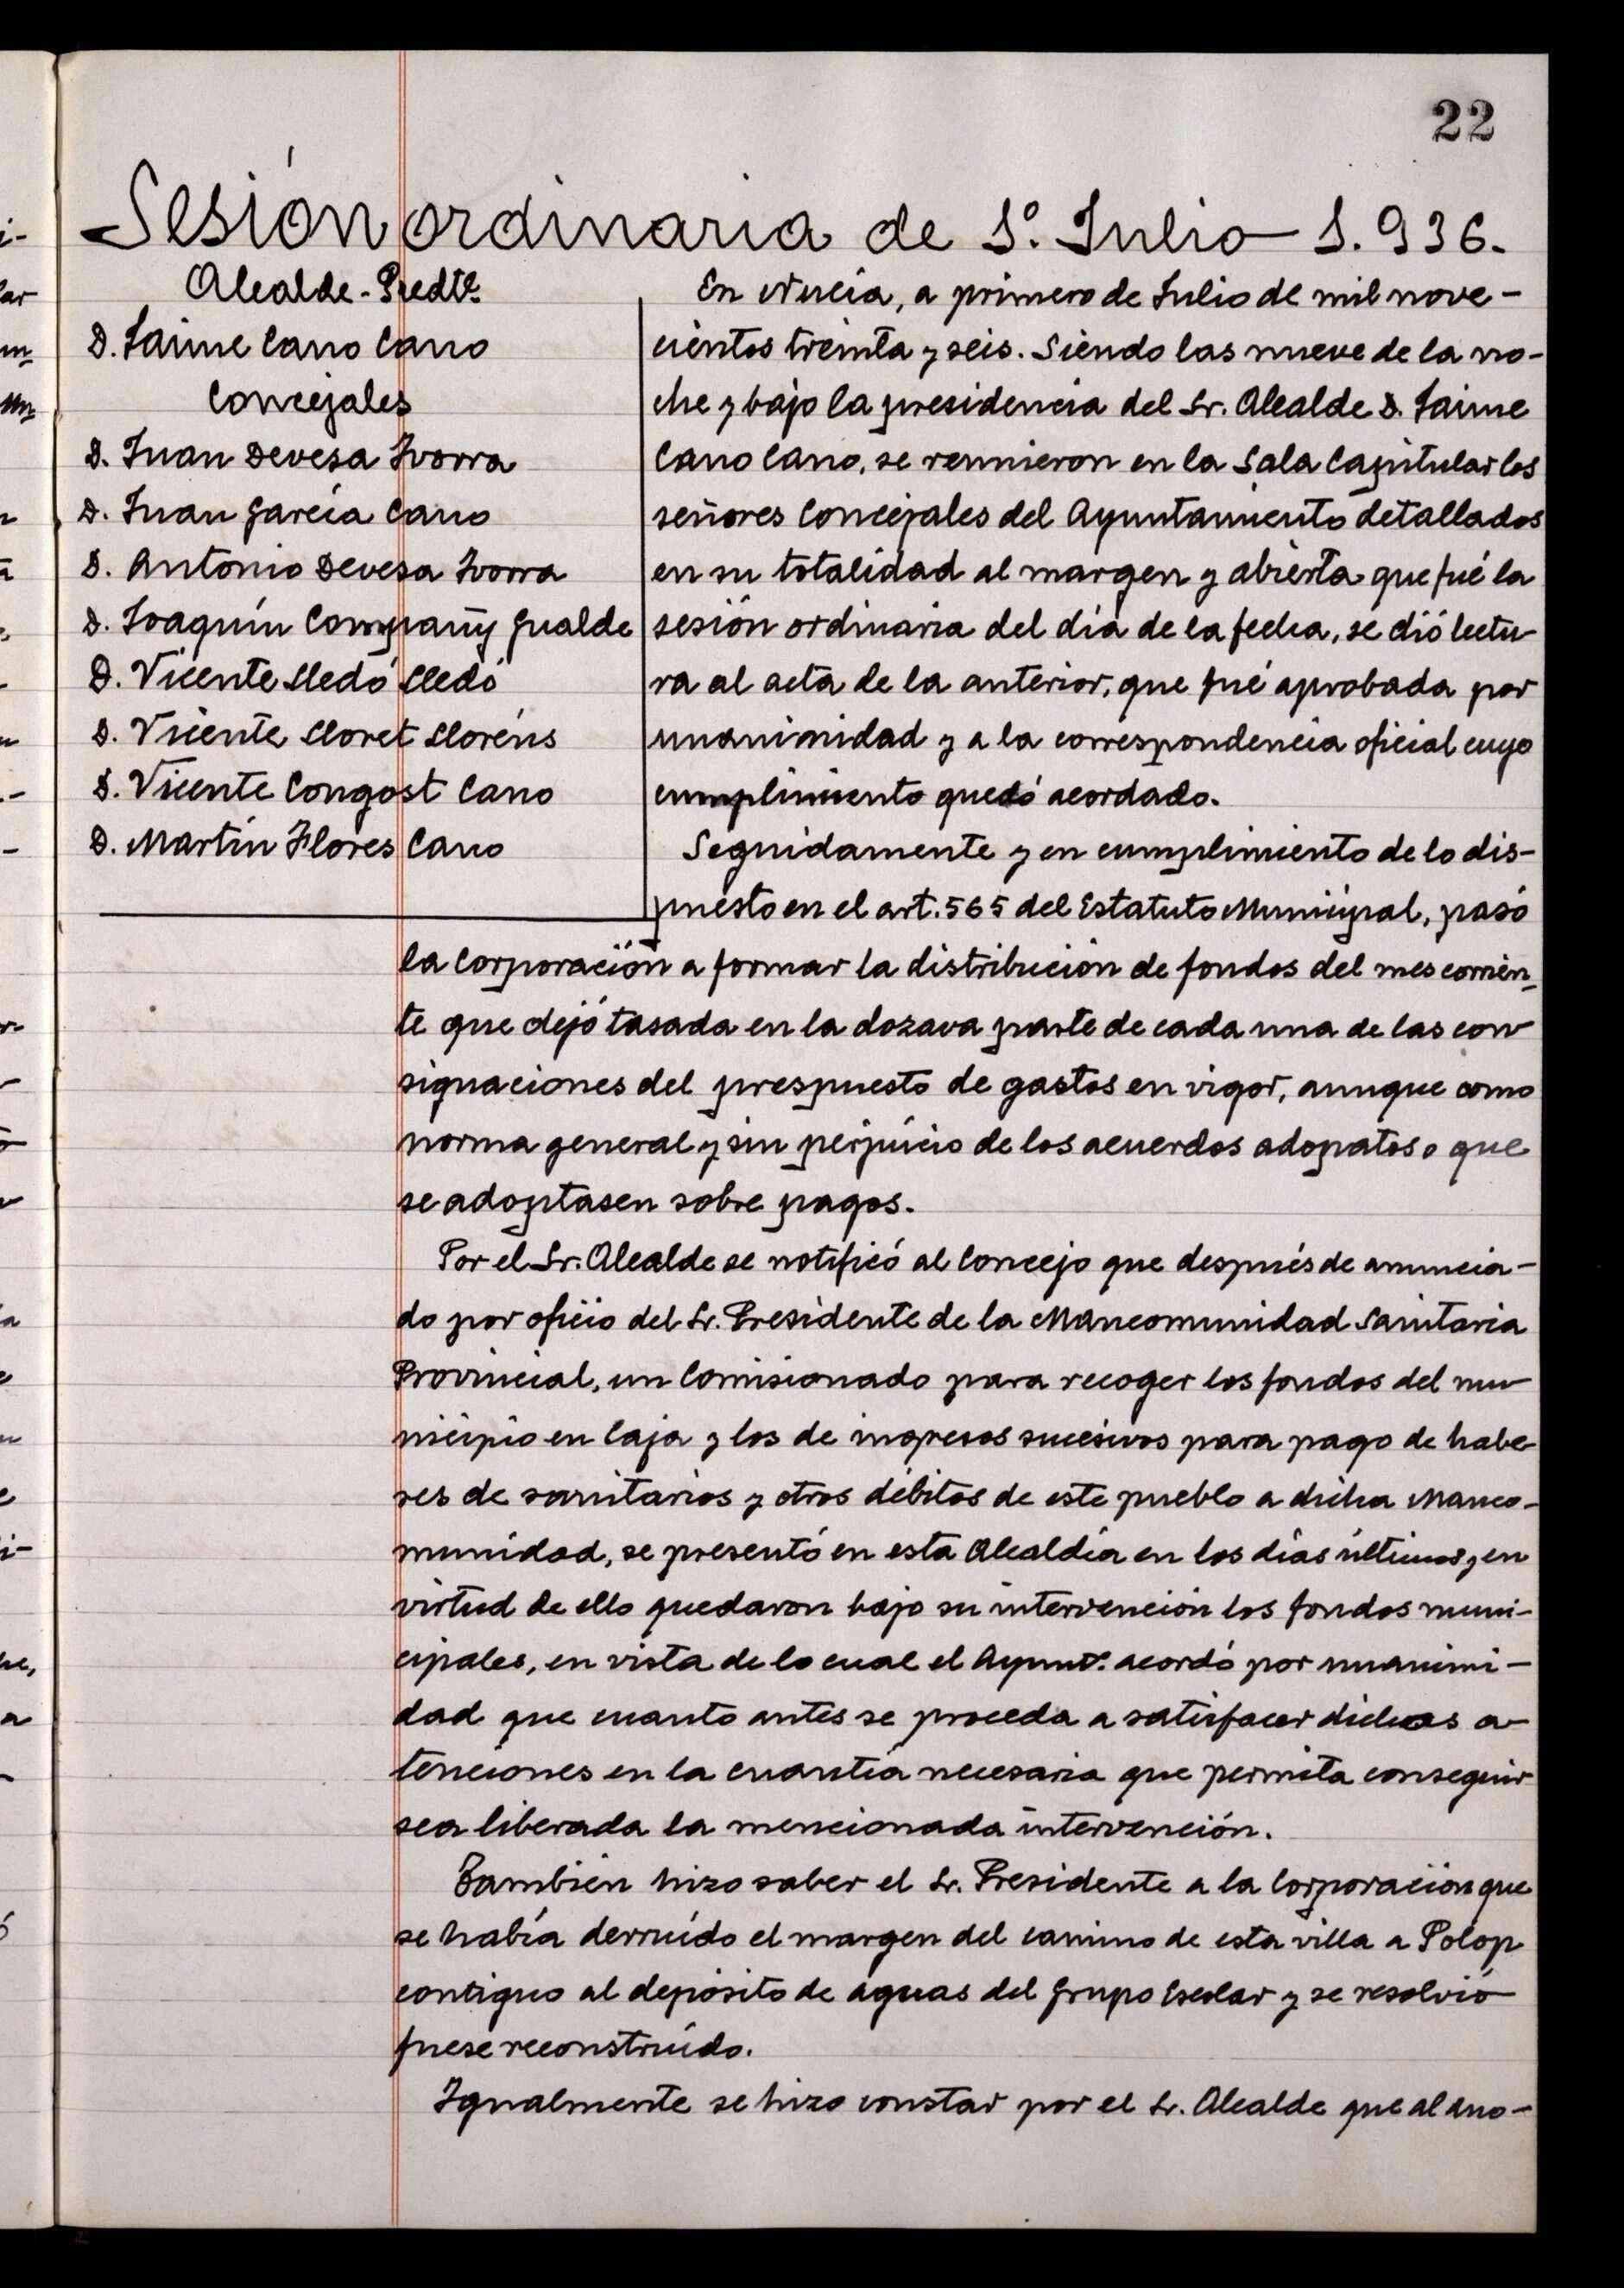 22
Sesión ordinaria de 1º Julio 1.936.
Alcalde-Predte.
D. Jaime Cano Cano
Concejales
D. Juan Devesa Ivorra
D. Juan García Cano
D. Antonio Devesa Ivorra
D. Joaquín Company Gualde
D. Vicente Lledó Lledó
D. Vicente Lloret Lloréns
D. Vicente Congost Cano
D. Martín Flores Cano
En Nucía, a primero de Julio de mil nove-
cientos treinta y seis. Siendo las nueve de la no-
che y bajo la presidencia del Sr. Alcalde D. Jaime
Cano Cano, se reunieron en la Sala Capitular los
señores Concejales del Ayuntamiento detallados
en su totalidad al margen y abierta que fué la
sesión ordinaria del día de la fecha, se dió lectu-
ra al acta de la anterior, que fué aprobada por
unanimidad y a la correspondencia oficial cuyo
cumplimiento quedó acordado.
Seguidamente y en cumplimiento de lo dis-
puesto en el art. 565 del Estatuto Municipal, pasó
la Corporación a formar la distribución de fondos del mes corrien-
te que dejó tasada en la dozava parte de cada una de las con-
signaciones del prespuesto de gastos en vigor, aunque como
norma general y sin perjuicio de los acuerdos adopatos o que
se adoptasen sobre pagos.
Por el Sr. Alcalde se notificó al Concejo que después de anuncia-
do por oficio del Sr. Presidente de la Mancomunidad Sanitaria
Provincial, un Comisionado para recoger los fondos del mu-
nicipio en Caja y los de ingresos sucesivos para pago de habe-
res de sanitarios y otros débitos de este pueblo a dicha Manco-
munidad, se presentó en esta Alcaldía en los días últimos y en
virtud de ello quedaron bajo su intervención los fondos muni-
cipales, en vista de lo cual el Ayuntº. acordó por unanimi-
dad que cuanto antes se proceda a satisfacer dichas a-
tenciones en la cuantía necesaria que permita conseguir
sea liberada la mencionada intervención.
También hizo saber el Sr. Presidente a la Corporación que
se había derruído el margen del camino de esta villa a Polop
contiguo al depósito de aguas del Grupo Escolar y se resolvió
fuese reconstruído.
Igualmente se hizo constar por el Sr. Alcalde que al ano-